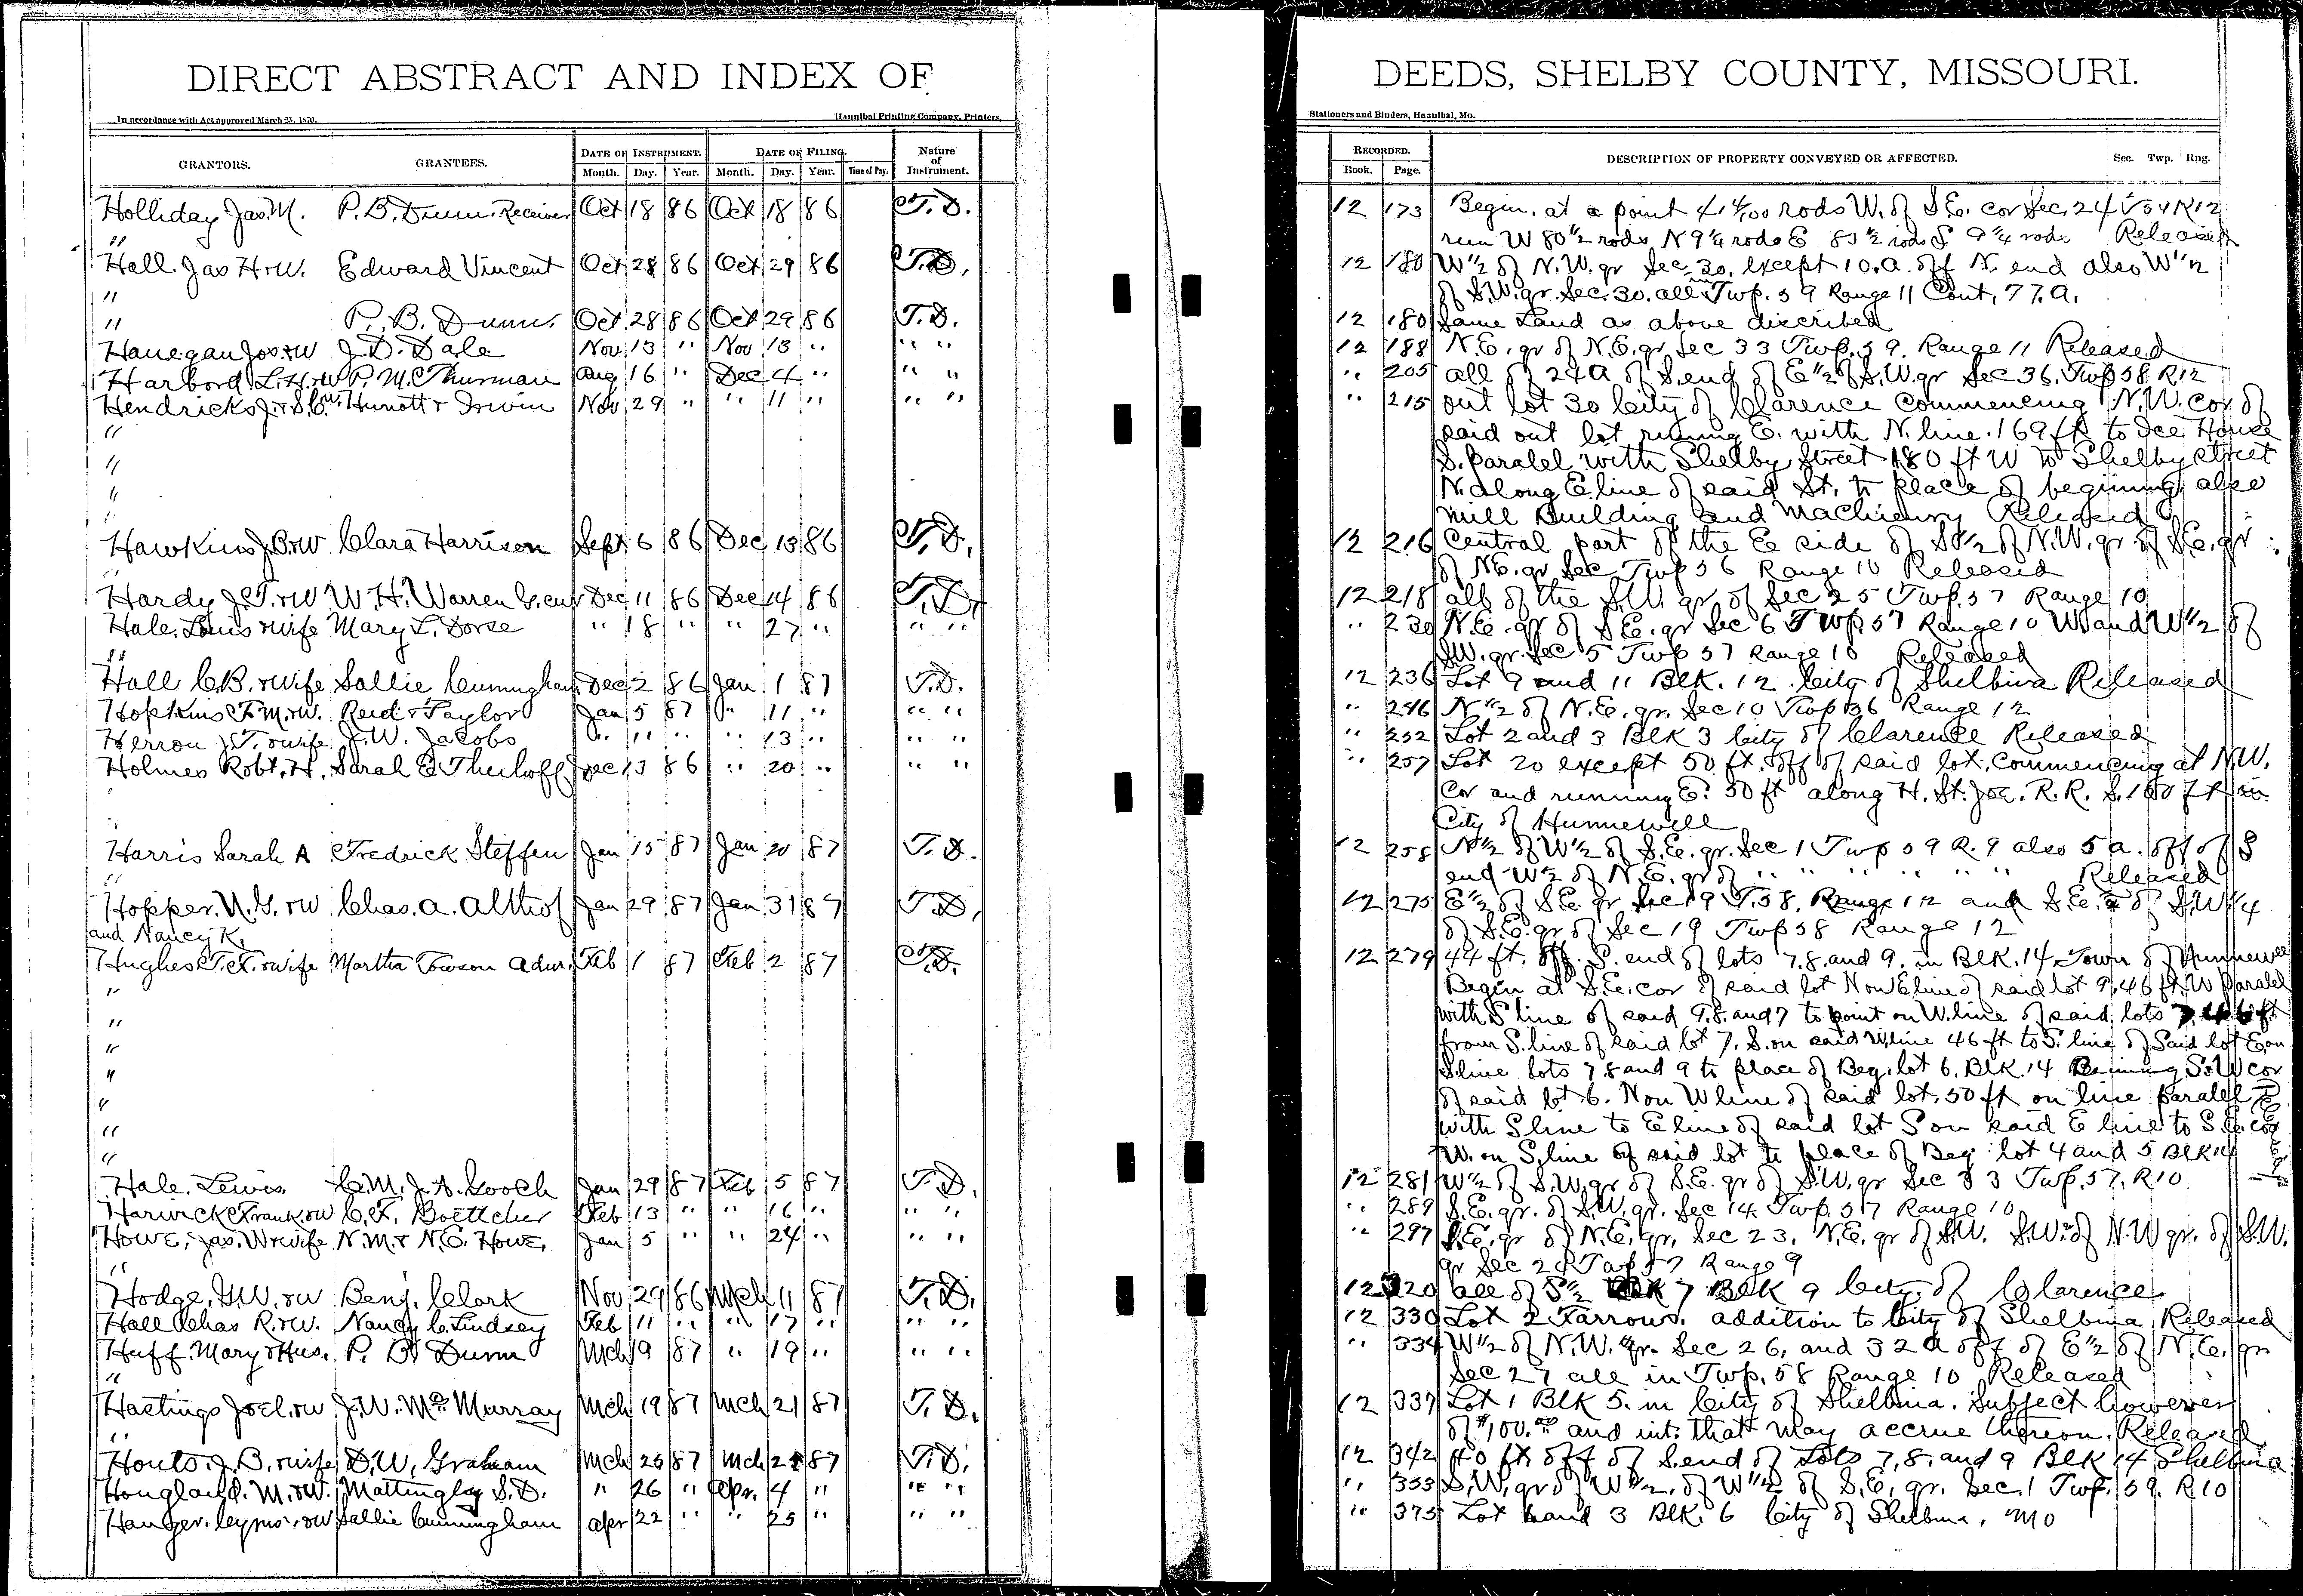 DIRECT ABSTRACT AND INDEX OF
In accordance with Act approved March 25, 1870.
Hannibal Printing Company, Printers,
GRANTORS. GRANTEES. DATE OF INSTRUMENT. DATE OF FILING. Nature of Instrument.
Month. Day. Year. Month. Day. Year. Time of Day.
Holliday Jas. M. P. B. Dunn. Receiver Oct 18 86 Oct 18 86 T. D.
"
Hall. Jas H. & W. Edward Vincent Oct 28 86 Oct 29 86 T. D.
"
" P. B. Dunn. Oct 28 86 Oct 29 86 T. D.
Hanegan Jos. & W J. D. Dale Nov 13 " Nov 13 " " "
Harbord L. H. & W P. M. Thurman Aug 16 " Dec 4 " " "
Hendricks J. & S. C. Hunott & Irwin Nov 29 " " 11 " " "
"
"
"
"
Hawkins J. B. & W Clara Harrison Sept 6 86 Dec 13 86 T. D.
"
Hardy J. T. & W W. H. Warren Dec 11 86 Dec 14 86 T. D.
Hale. Louis & wife Mary L. Dorse " 18 " " 27 " " "
"
Hall C. B. & wife Sallie Cunningham Dec 2 86 Jan 1 87 T. D.
Hopkins T. M. & W. Reid & Taylor Jan 5 87 " 11 " " "
Herron J. T. & wife J. W. Jacobs " 11 " " 13 " " "
Holmes Robt. H. Sarah E Dec 13 86 " 20 " " "
"
"
Harris Sarah A Fredrick Steffen Jan 15 87 Jan 20 87 T. D.
"
Hopper. N. G. & W Chas. A. Althof Jan 29 87 Jan 31 87 T. D.
and Nancy K.
Hughes T. F. & wife Martha Towson Admr. Feb 1 87 Feb 2 87 T. D.
"
"
"
"
"
"
"
Hale. Lewis. C. M. J. A. Gooch Jan 29 87 Feb 5 87 T. D.
Harwick Frank & W C. F. Boettcher Feb 13 " " 16 " " "
Howe, Jas. W & wife N. M. & N. E. Howe, Jan 5 " " 24 " " "
"
Hodge, G. W. & W Benj. Clark Nov 29 86 Mch 11 87 T. D.
Hall Chas R. & W. Nancy C. Lindsey Feb 11 " " 17 " " "
Huff. Mary & Hus. P. B. Dunn Mch 9 87 " 19 " " "
"
Hastings Joel. & W J. W. McMurray Mch 19 87 Mch 21 87 T. D.
"
Houts. J. B. & wife D. W. Graham Mch 26 87 Mch 87 T. D.
Hougland. M. & W. Mattingley S. D. " 26 " Apr. 4 " " "
Hanger. Cyrus. & W Sallie Cunningham Apr 22 " " 25 " " "
DEEDS, SHELBY COUNTY, MISSOURI.
Stationers and Binders, Hannibal, Mo.
RECORDED. DESCRIPTION OF PROPERTY CONVEYED OR AFFECTED. Sec. Twp. Rng.
Book. Page.
12 173 Begin. at a point 41 4/100 rods W. of S. E. cor Sec. 24 R 12
run W 80 1/2 rods N 9 1/4 rods E 83 1/2 rods S 9 1/4 rods Released
12 180 W 1/2 of N. W. qr Sec. 30. except 10. a. off N. end also W 1/2
of S. W. qr. Sec. 30. all in Twp. 59 Range 11 Cont. 77. a.
12 180 Same Land as above discribed
12 188 N. E. qr of N. E. qr Sec 33 Twp. 59. Range 11 Released
" 205 all of 24 a of S. end of E 1/2 of S. W. qr Sec 36. Twp 58. R 12
" 215 out lot 30 City of Clarence Commencing N. W. cor of
said out lot running E. with N. line. 169 ft to Ice House
S. paralel with Shelby Street 180 ft W to Shelby street
N. along E. line of said St. to place of beginning also
mill Building and Machinery Released
12 216 Central part of the E side of S 1/2 of N. W. qr of S. E. qr
of N. E. qr Sec Twp 56 Range 10 Released
12 218 all of the S. W. qr of Sec 25 Twp. 57 Range 10
" 230 N. E. qr of S. E. qr Sec 6 Twp. 57 Range 10 W and W 1/2 of
S. W. qr. Sec 5 Twp 57 Range 10 Released
12 236 Lot 9 and 11 Blk. 12 City of Shelbina Released
" 246 N 1/2 of N. E. qr. Sec 10 Twp 56 Range 12
" 252 Lot 2 and 3 Blk 3 City of Clarence Released
" 257 Lot 20 except 50 ft. off of said lot. Commencing at N. W.
Cor and running E. 50 ft along H. St. Joe. R. R. S. 150 ft in
City of Hunnewell
12 258 N 1/2 of W 1/2 of S. E. qr. Sec 1 Twp 59 R. 9 also 5 a. off of S
end W 1/2 of N. E. qr of " " " " " Released
12 275 E 1/2 of S. E. qr Sec 19 T. 58. Range 12 and S. E. of S. W 1/4
of S. E. qr of Sec 19 Twp 58 Range 12
12 279 44 ft. off. S. end of lots 7. 8. and 9. in Blk. 14. Town of Hunnewell
Begin at S. E. cor of said lot N on E line of said lot 9. 46 ft. W paralel
with S line of said 9. 8. and 7 to point on W. line of said lots 7 46 ft
from S. line of said lot 7. S. on said W. line 46 ft to S. line of said lot E. on
S line lots 7 8 and 9 to place of Beg. lot 6. Blk. 14 S. W cor
of said lot 6. N on W line of said lot. 50 ft on line paralel
with S line to E line of said lot S on said E line to S. E. cor
W. on S. line of said lot to place of Beg lot 4 and 5 Blk 14
Released
12 281 W 1/2 of S. W. qr of S. E. qr of S. W. qr Sec 33 Twp. 57. R 10
" 289 S. E. qr. of S. W. qr. Sec 14. Twp. 57 Range 10
" 297 S. E. qr of N. E. qr. Sec 23. N. E. qr of S. W. S. W. of N. W qr. of S. W.
qr Sec 24 Twp 57 Range 9
12 320 all of S 1/2 7 Blk 9 City of Clarence
12 330 Lot 2 Farrows. addition to City of Shelbina Released
" 334 W 1/2 of N. W. qr. Sec 26, and 32 a off of E 1/2 of N. E. qr
Sec 27 all in Twp. 58 Range 10 Released
12 337 Lot 1 Blk 5. in City of Shelbina. Subject however
of $100.00 and int. that may accrue thereon. Released
12 342 40 ft. off of S. end of Lots 7, 8, and 9 Blk 14 Shelbina
" 353 S. W. qr of W 1/2. of W 1/2 of S. E. qr. Sec. 1 Twp. 59. R 10
" 375 Lot and 3 Blk. 6 City of Shelbina, Mo